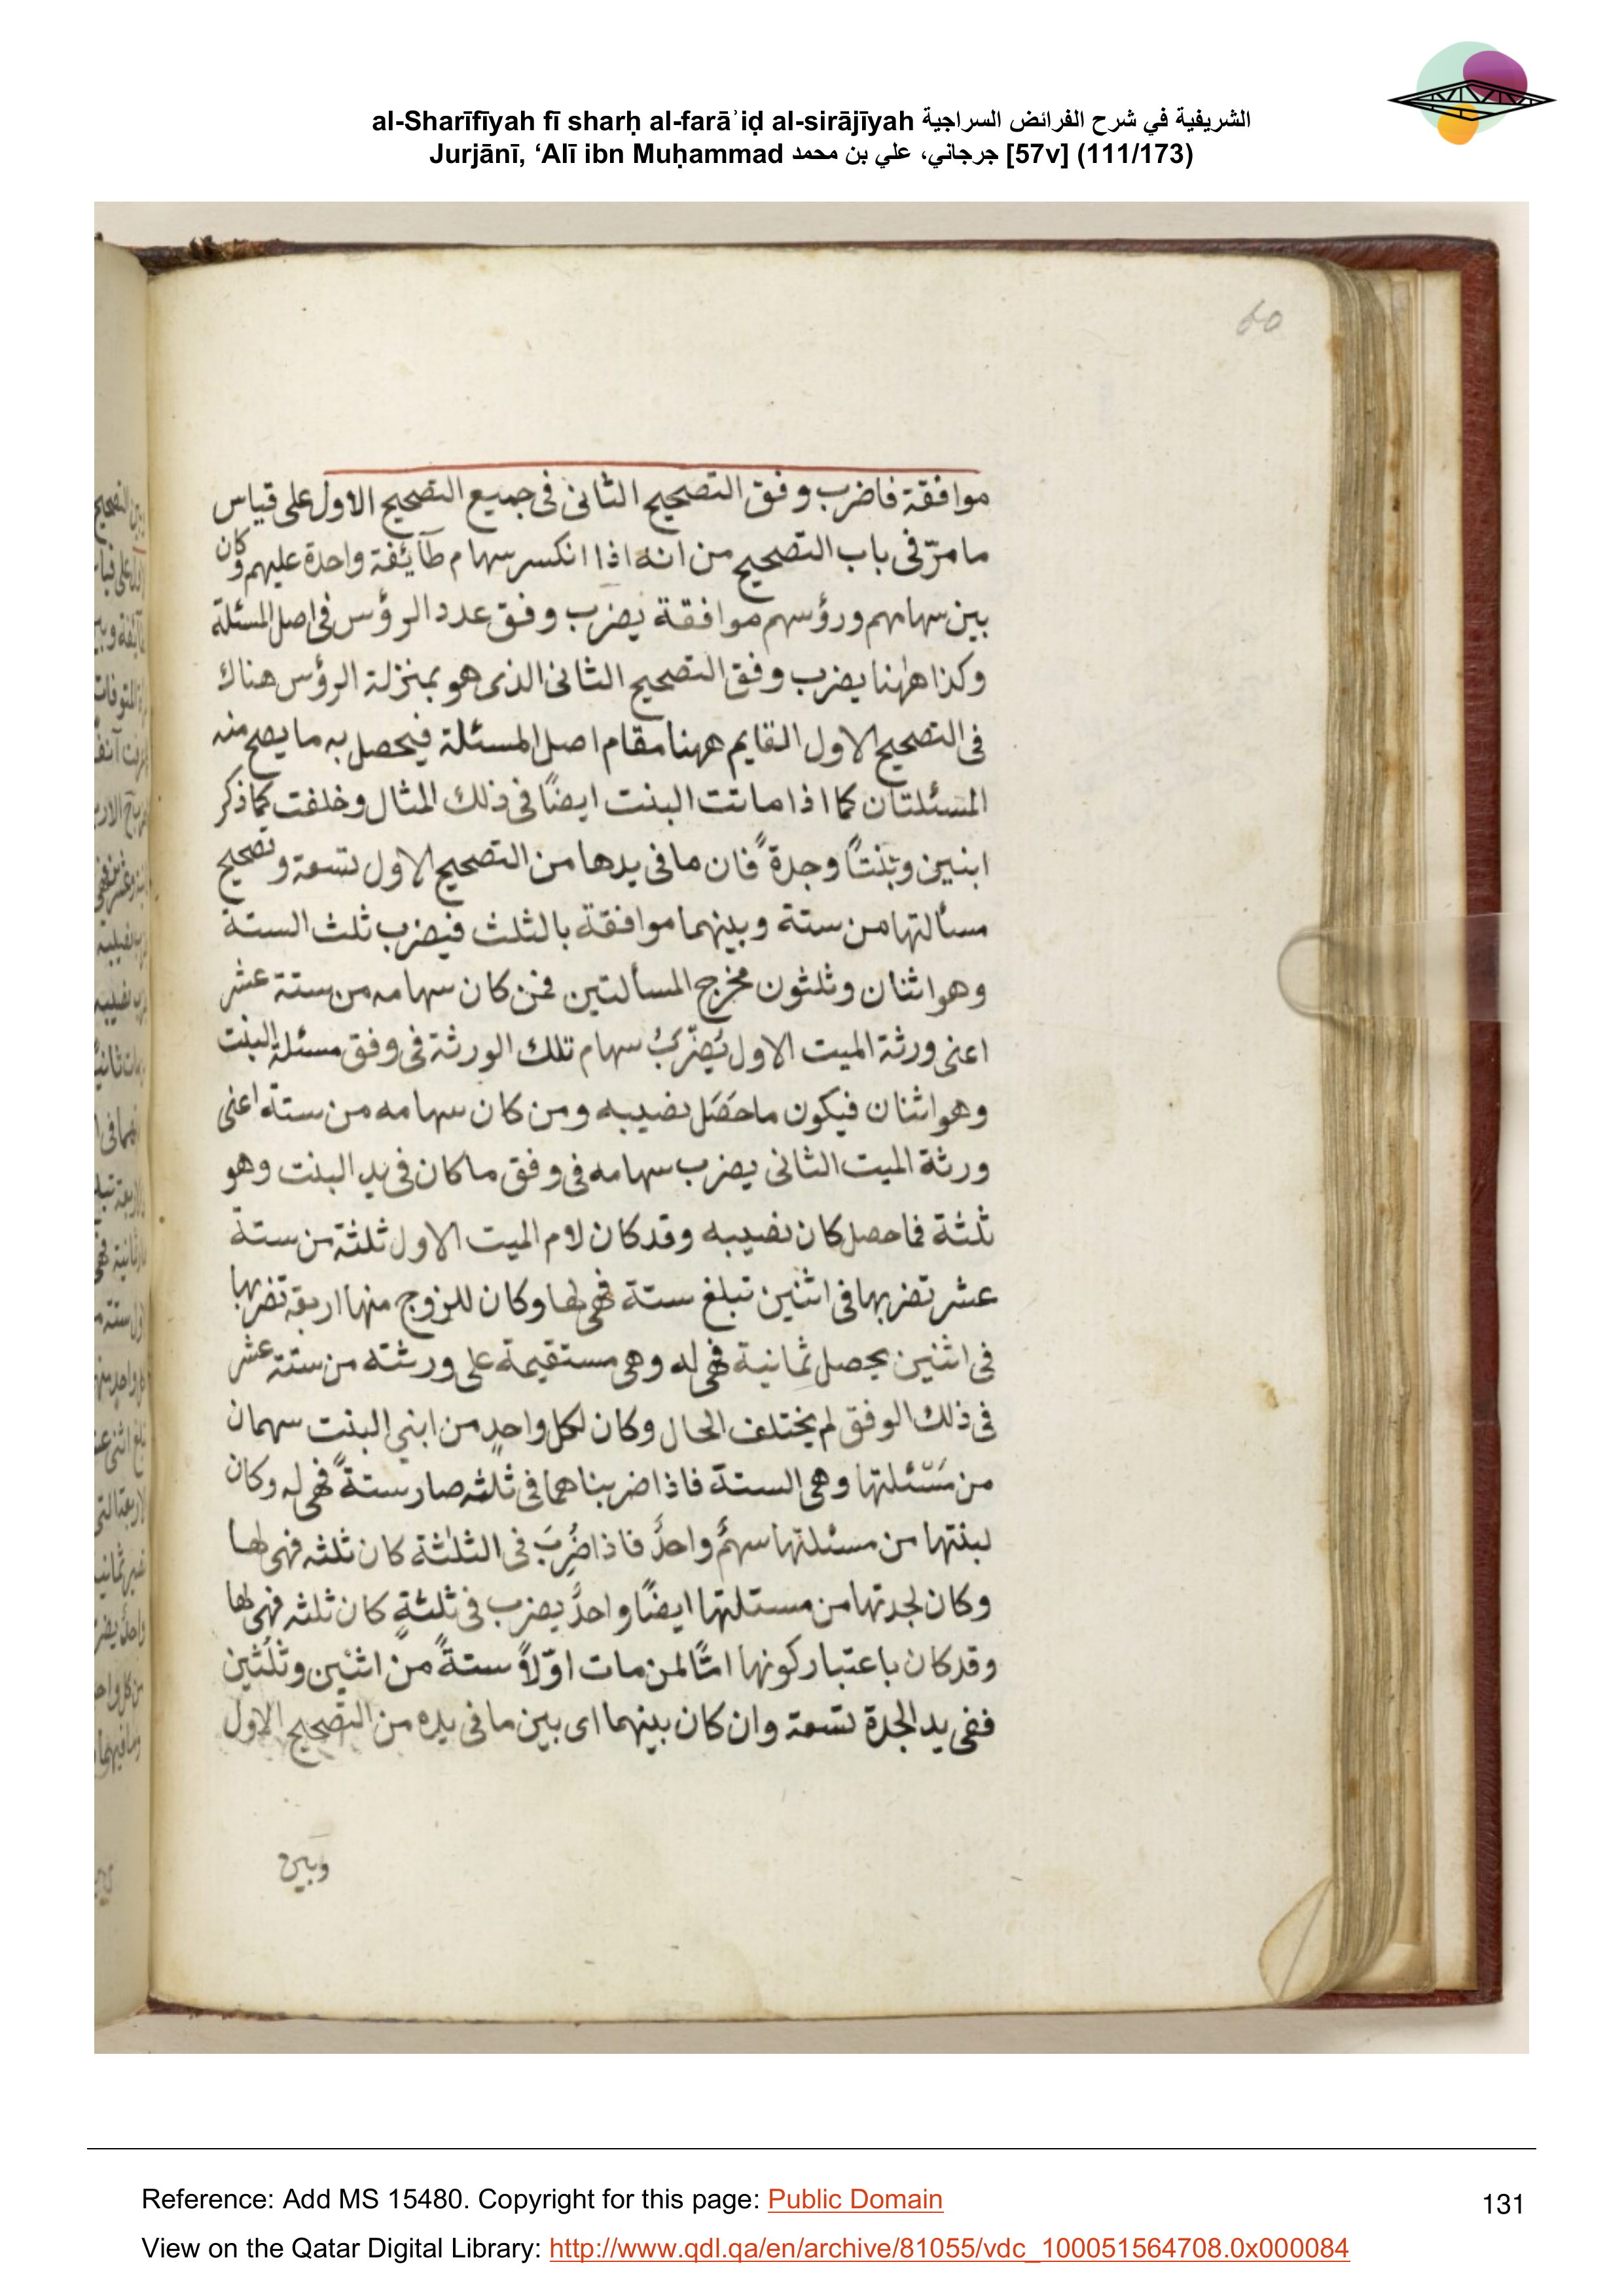 al-Sharīfīyah fī sharḥ al-farāʾiḍ al-sirājīyah الشريفية في شرح الفرائض السراجية
Jurjānī, ‘Alī ibn Muḥammad جرجاني، علي بن محمد [57v] (111/173)
60
موافقة فاضرب وفق التصحيح الثانى فى جميع التصحيح الاول على قياس
ما مرّ فى باب التصحيح من انه اذا انكسر سهام طآئفة واحدة عليهم وكان
بين سهامهم ورؤسهم موافقة يضرب وفق عدد الرؤس فى اصل المسئلة
وكذا ههنا يضرب وفق التصحيح الثانى الذى هو بمنزلة الرؤس هناك
فى التصحيح الاول القايم ههنا مقام اصل المسئلة فيحصل به ما يصح منه
المسئلتان كما اذا ماتت البنت ايضًا فى ذلك المثال وخلفت كما ذكر
ابنين وبنتًا وجدةً فان ما فى يدها من التصحيح الاول تسعة وتصحيح
مسألتها من ستة وبينهما موافقة بالثلث فيضرب ثلث الستة
وهو اثنان وثلثون مخرج المسألتين فمن كان سهامه من ستة عشر
اعنى ورثة الميت الاول يُضرَبُ سهام تلك الورثة فى وفق مسئلة البنت
وهو اثنان فيكون ما حَصَل نصيبه ومن كان سهامه من ستة اعنى
ورثة الميت الثانى يضرب سهامه فى وفق ما كان فى يد البنت وهو
ثلثة فما حصل كان نصيبه وقد كان لام الميت الاول ثلثة من ستة
عشر تضربها فى اثنين تبلغ ستة فهى لها وكان للزوج منها اربعة تضربها
فى اثنين يحصل ثمانية فهى له وهى مستقيمة على ورثته من ستة عشر
فى ذلك الوفق لم يختلف الحال وكان لكل واحدٍ من ابني البنت سهمان
من مَسْئلتها وهى الستة فاذا ضربناهما فى ثلثه صار ستةً فهى له وكان
لبنتها من مسئلتها سهمٌ واحدٌ فاذا ضُرِبَ فى الثلثة كان ثلثه فهى لها
وكان لجدتها من مسئلتها ايضًا واحدٌ يضرب فى ثلثةٍ كان ثلثه فهى لها
وقد كان باعتبار كونها امًّا لمن مات اوّلًا ستةً من اثنين وثلثين
ففى يد الجدة تسعة وان كان بينهما اى بين ما فى يده من التصحيح الاول
وبين
Reference: Add MS 15480. Copyright for this page: Public Domain
131
View on the Qatar Digital Library: http://www.qdl.qa/en/archive/81055/vdc_100051564708.0x000084